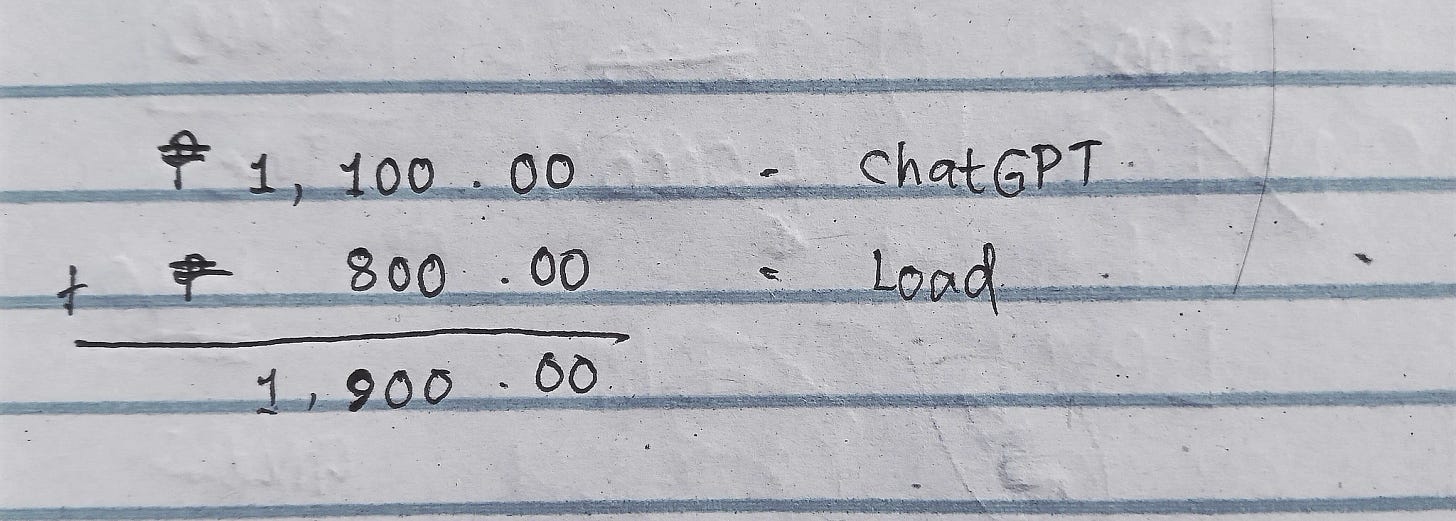 ₱ 1,100.00 - ChatGPT
+ ₱ 800.00 = Load
1,900.00